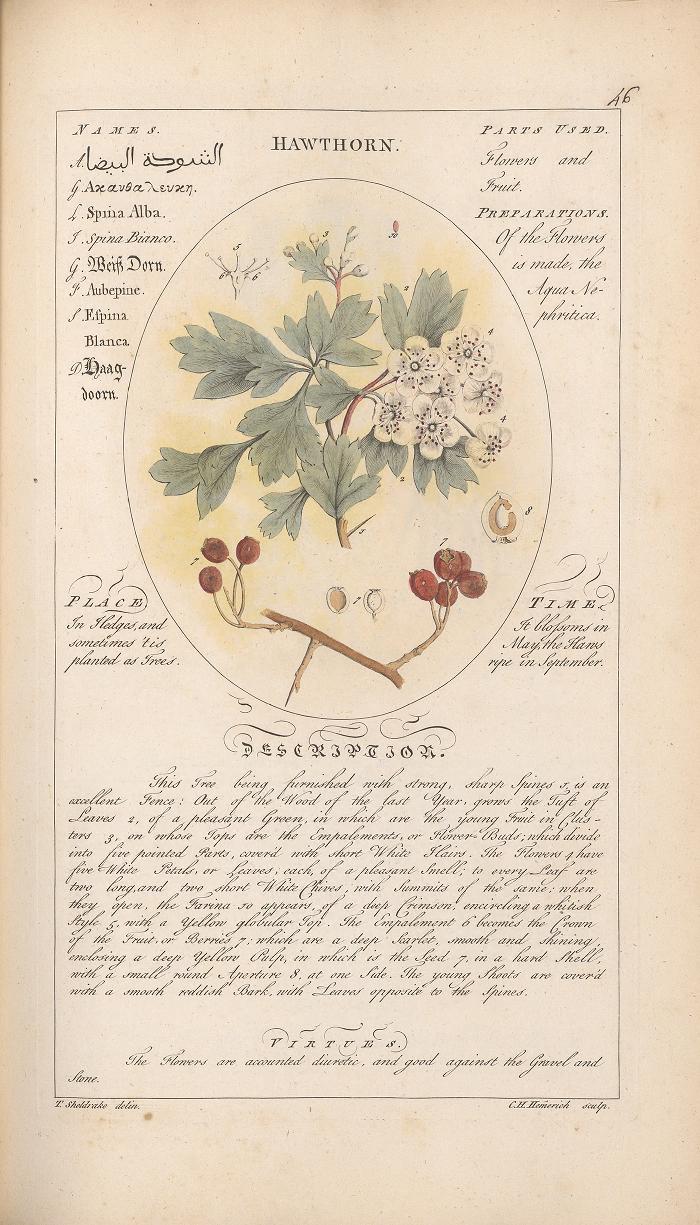 46
HAWTHORN.
NAMES.
A. الشوكة البيضا
G. Ακανθα λευκη.
L. Spina Alba.
I. Spina Bianco.
G. Weiß Dorn.
F. Aubepine.
S. Espina
Blanca
D. Haag-
doorn.
PARTS USED.
Flowers and
Fruit.
PREPARATIONS.
Of the Flowers
is made, the
Aqua Ne-
phritica.
PLACE
In Hedges, and
sometimes 'tis
planted as Trees.
TIME.
It bloſsoms in
May, the Haws
ripe in September.
DESCRIPTION.
This Tree being furnished with strong, sharp Spines 1, is an
excellent Fence: Out of the Wood of the last Year, grows the Tuft of
Leaves 2, of a pleasant Green, in which are the young Fruit in Clus-
ters 3, on whose Tops are the Empalements, or Flower-Buds; which divide
into five pointed Parts, cover'd with short White Hairs. The Flowers 4 have
five White Petals, or Leaves; each, of a pleasant Smell; to every Leaf are
two long, and two short White Chives, with Summits of the same: when
they open, the Farina 10 appears, of a deep Crimson, encircling a whitish
Style 5, with a Yellow globular Top. The Empalement 6 becomes the Crown
of the Fruit, or Berries 7; which are a deep Scarlet, smooth and shining;
enclosing a deep Yellow Pulp, in which is the Seed 7, in a hard Shell,
with a small round Aperture 8, at one Side. The young Shoots are cover'd
with a smooth reddish Bark, with Leaves opposite to the Spines.
VIRTUES.
The Flowers are accounted diuretic, and good against the Gravel and
Stone.
T. Sheldrake delin.
C.H. Hemerich sculp.